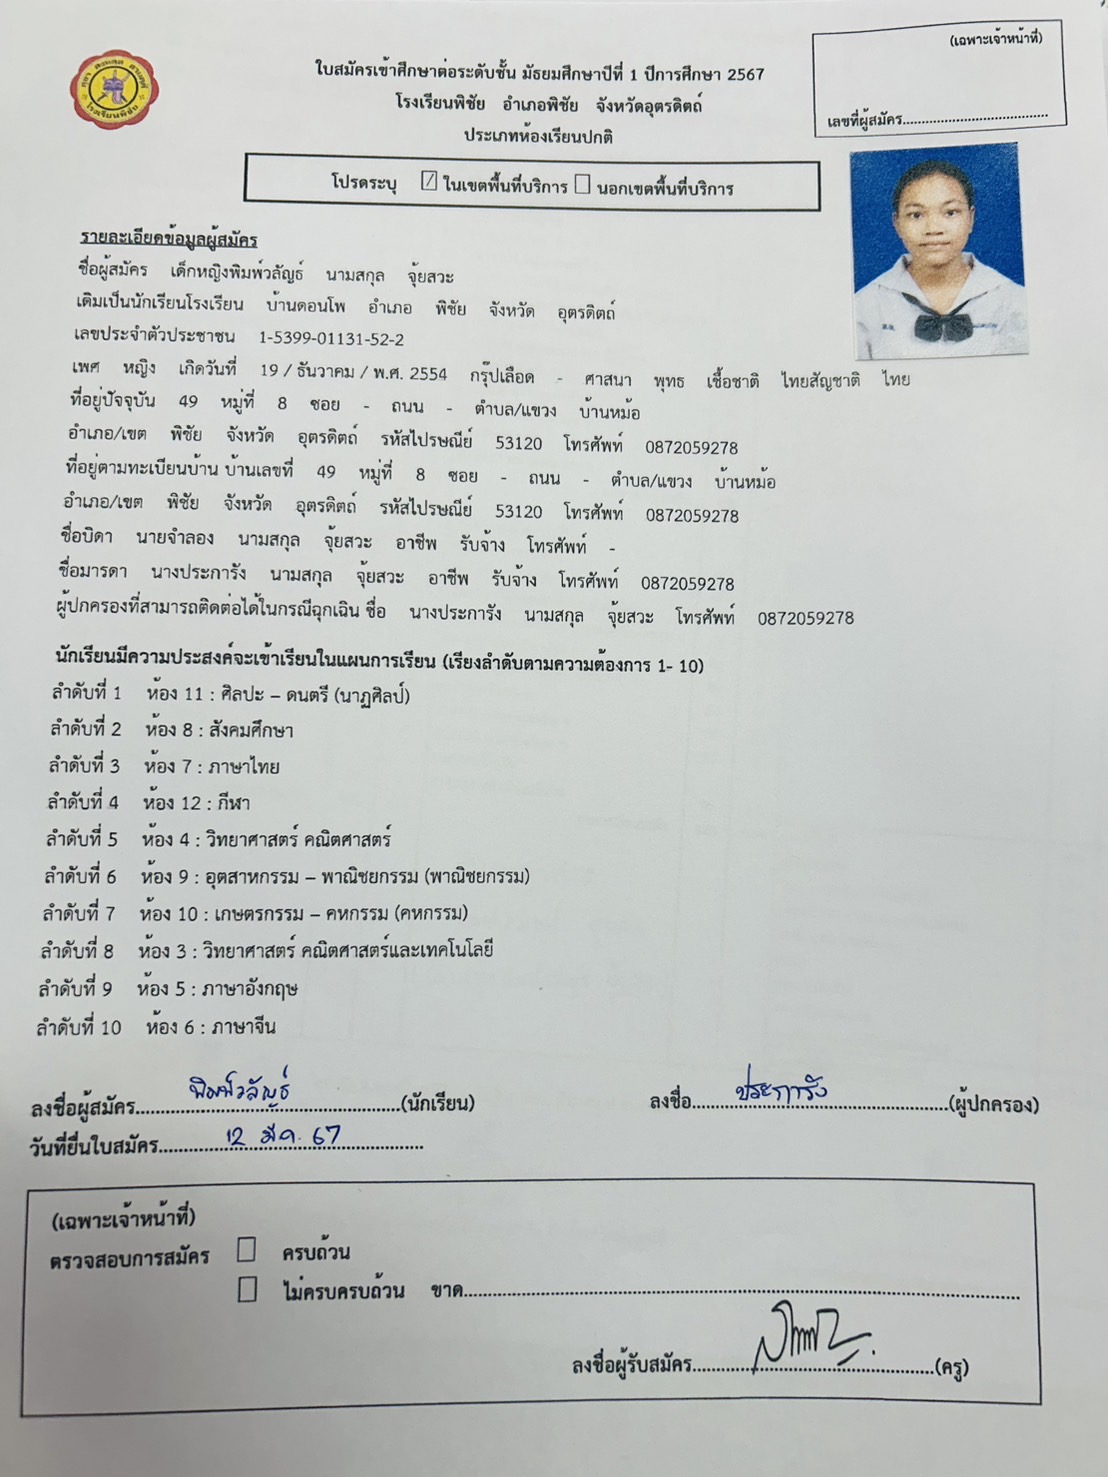 (เฉพาะเจ้าหน้าที่)
เลขที่ผู้สมัคร......................................
โรงเรียนพิชัย
ใบสมัครเข้าศึกษาต่อระดับชั้น มัธยมศึกษาปีที่ 1 ปีการศึกษา 2567
โรงเรียนพิชัย อำเภอพิชัย จังหวัดอุตรดิตถ์
ประเภทห้องเรียนปกติ
โปรดระบุ ☑ ในเขตพื้นที่บริการ ☐ นอกเขตพื้นที่บริการ
รายละเอียดข้อมูลผู้สมัคร
ชื่อผู้สมัคร เด็กหญิงพิมพ์วลัญธ์ นามสกุล จุ้ยสวะ
เดิมเป็นนักเรียนโรงเรียน บ้านดอนโพ อำเภอ พิชัย จังหวัด อุตรดิตถ์
เลขประจำตัวประชาชน 1-5399-01131-52-2
เพศ หญิง เกิดวันที่ 19 / ธันวาคม / พ.ศ. 2554 กรุ๊ปเลือด - ศาสนา พุทธ เชื้อชาติ ไทยสัญชาติ ไทย
ที่อยู่ปัจจุบัน 49 หมู่ที่ 8 ซอย - ถนน - ตำบล/แขวง บ้านหม้อ
อำเภอ/เขต พิชัย จังหวัด อุตรดิตถ์ รหัสไปรษณีย์ 53120 โทรศัพท์ 0872059278
ที่อยู่ตามทะเบียนบ้าน บ้านเลขที่ 49 หมู่ที่ 8 ซอย - ถนน - ตำบล/แขวง บ้านหม้อ
อำเภอ/เขต พิชัย จังหวัด อุตรดิตถ์ รหัสไปรษณีย์ 53120 โทรศัพท์ 0872059278
ชื่อบิดา นายจำลอง นามสกุล จุ้ยสวะ อาชีพ รับจ้าง โทรศัพท์ -
ชื่อมารดา นางประการัง นามสกุล จุ้ยสวะ อาชีพ รับจ้าง โทรศัพท์ 0872059278
ผู้ปกครองที่สามารถติดต่อได้ในกรณีฉุกเฉิน ชื่อ นางประการัง นามสกุล จุ้ยสวะ โทรศัพท์ 0872059278
นักเรียนมีความประสงค์จะเข้าเรียนในแผนการเรียน (เรียงลำดับตามความต้องการ 1- 10)
ลำดับที่ 1 ห้อง 11 : ศิลปะ – ดนตรี (นาฏศิลป์)
ลำดับที่ 2 ห้อง 8 : สังคมศึกษา
ลำดับที่ 3 ห้อง 7 : ภาษาไทย
ลำดับที่ 4 ห้อง 12 : กีฬา
ลำดับที่ 5 ห้อง 4 : วิทยาศาสตร์ คณิตศาสตร์
ลำดับที่ 6 ห้อง 9 : อุตสาหกรรม – พาณิชยกรรม (พาณิชยกรรม)
ลำดับที่ 7 ห้อง 10 : เกษตรกรรม – คหกรรม (คหกรรม)
ลำดับที่ 8 ห้อง 3 : วิทยาศาสตร์ คณิตศาสตร์และเทคโนโลยี
ลำดับที่ 9 ห้อง 5 : ภาษาอังกฤษ
ลำดับที่ 10 ห้อง 6 : ภาษาจีน
ลงชื่อผู้สมัคร....พิมพ์วลัญธ์....(นักเรียน) ลงชื่อ....ประการัง....(ผู้ปกครอง)
วันที่ยื่นใบสมัคร....12 มี.ค. 67....
(เฉพาะเจ้าหน้าที่)
ตรวจสอบการสมัคร ☐ ครบถ้วน
☐ ไม่ครบครบถ้วน ขาด........................................
ลงชื่อผู้รับสมัคร........................................(ครู)